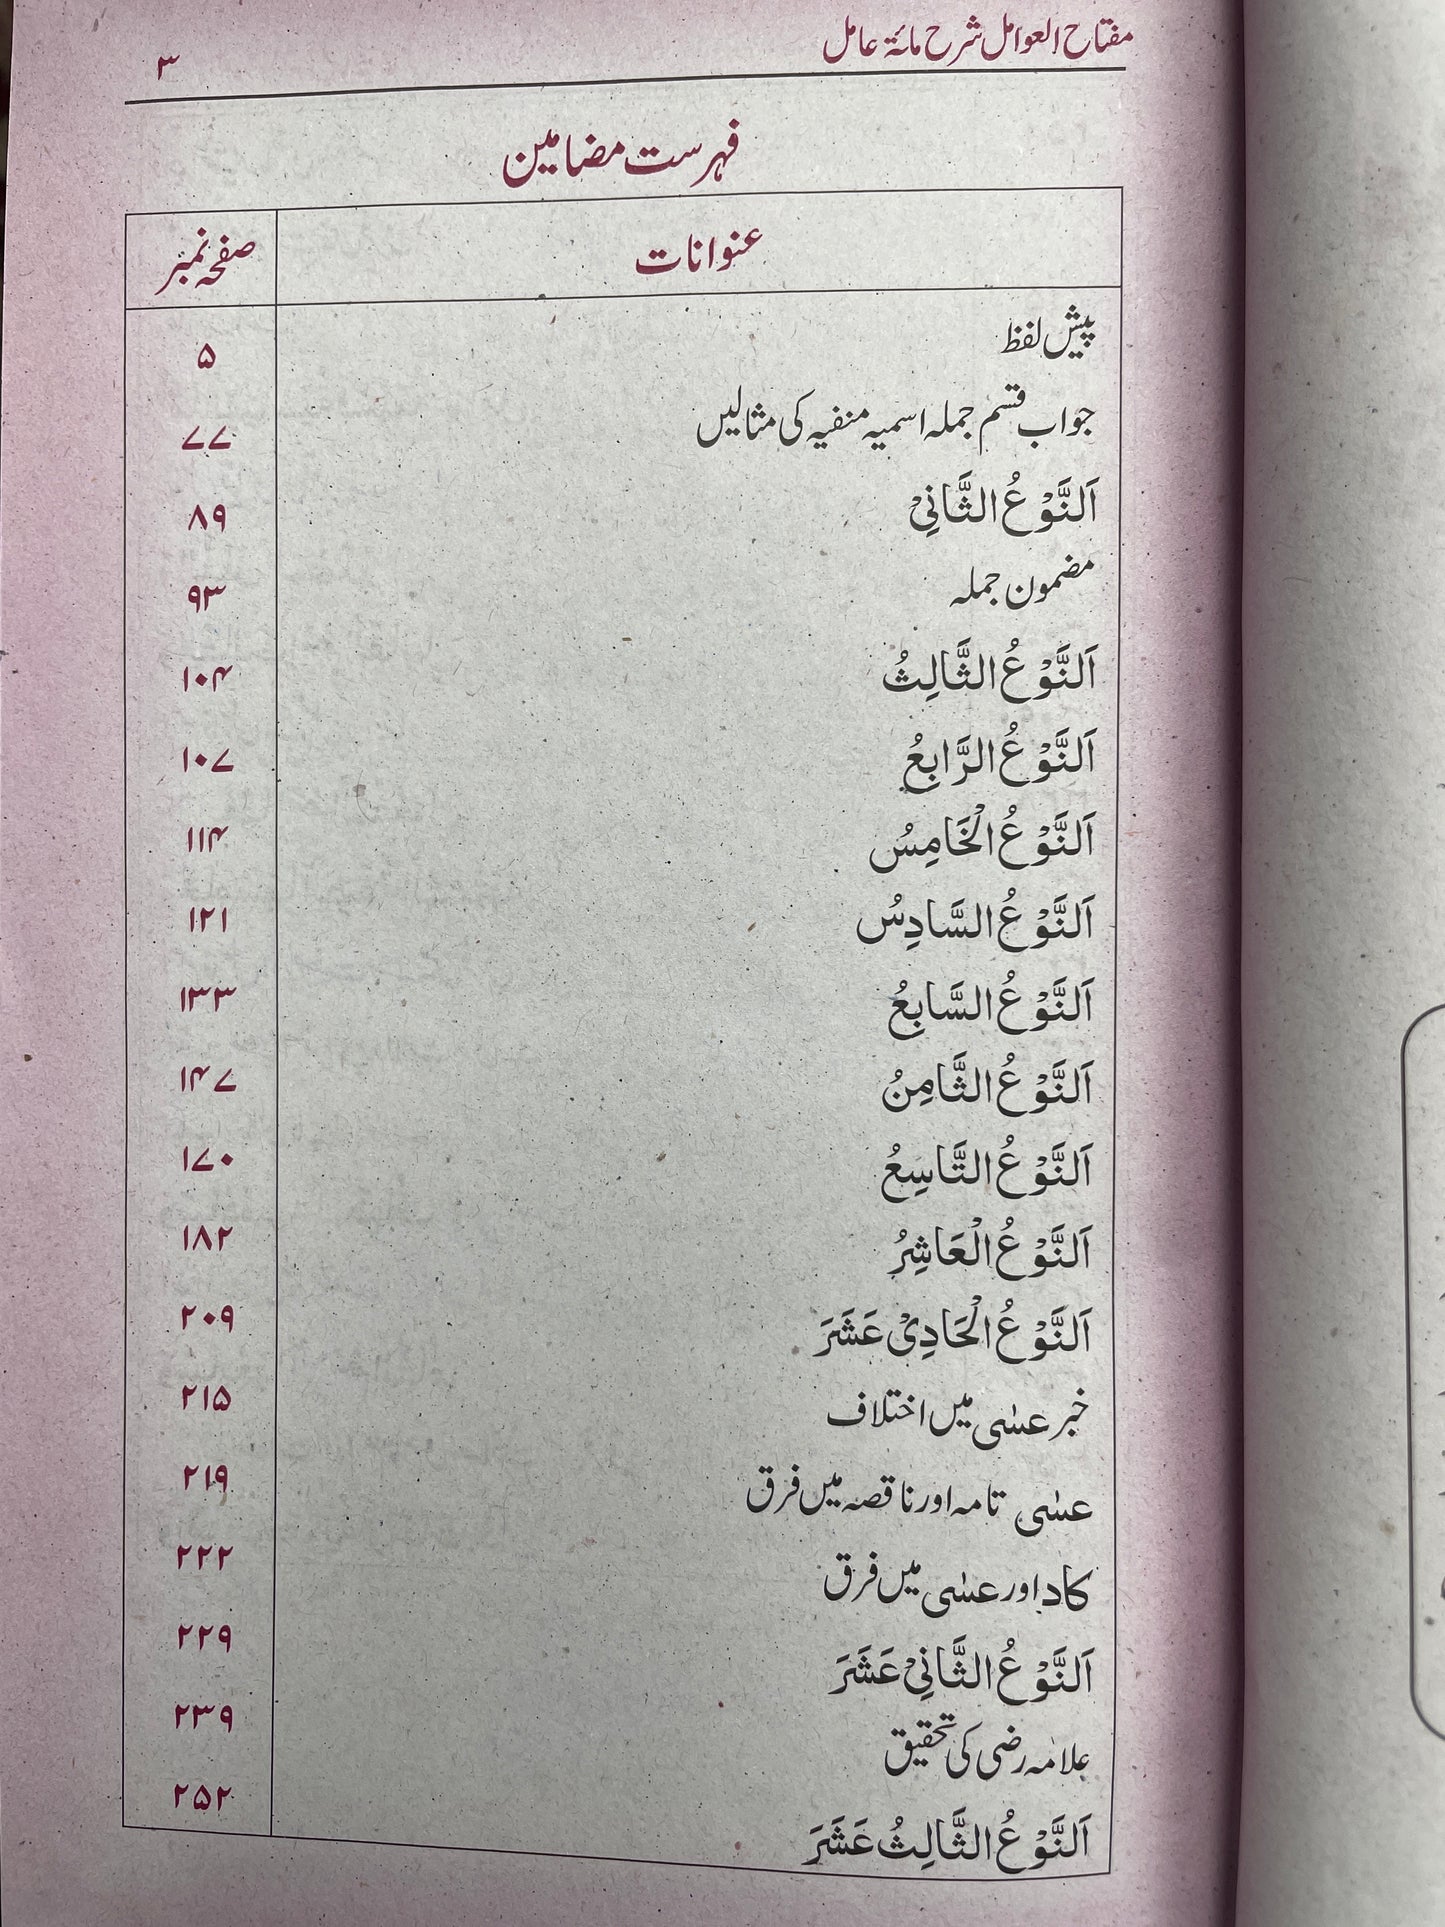 مفتاح العوامل شرح مائۃ عامل ۳
فہرست مضامین
عنوانات صفحہ نمبر
پیش لفظ ۵
جواب قسم جملہ اسمیہ منفیہ کی مثالیں ۷۷
اَلنَّوْعُ الثَّانِیْ ۸۹
مضمون جملہ ۹۳
اَلنَّوْعُ الثَّالِثُ ۱۰۴
اَلنَّوْعُ الرَّابِعُ ۱۰۷
اَلنَّوْعُ الْخَامِسُ ۱۱۴
اَلنَّوْعُ السَّادِسُ ۱۲۱
اَلنَّوْعُ السَّابِعُ ۱۳۳
اَلنَّوْعُ الثَّامِنُ ۱۴۷
اَلنَّوْعُ التَّاسِعُ ۱۷۰
اَلنَّوْعُ الْعَاشِرُ ۱۸۲
اَلنَّوْعُ الْحَادِیْ عَشَرَ ۲۰۹
خبر عسٰی میں اختلاف ۲۱۵
عسٰی تامہ اور ناقصہ میں فرق ۲۱۹
کاد اور عسٰی میں فرق ۲۲۲
اَلنَّوْعُ الثَّانِیْ عَشَرَ ۲۲۹
علامہ رضی کی تحقیق ۲۳۹
اَلنَّوْعُ الثَّالِثُ عَشَرَ ۲۵۲